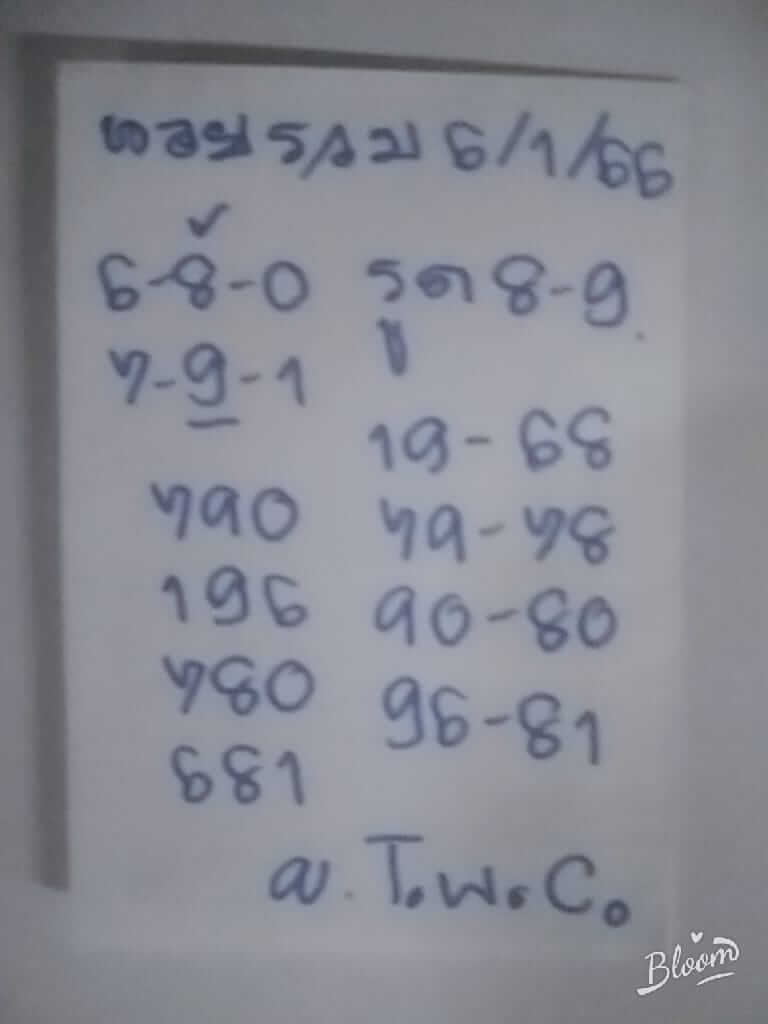 6/1/66
6-8-0 รูด 8-9
7-9-1
19-68
790 79-78
196 90-80
780 96-81
681
T.W.C.
Bloom